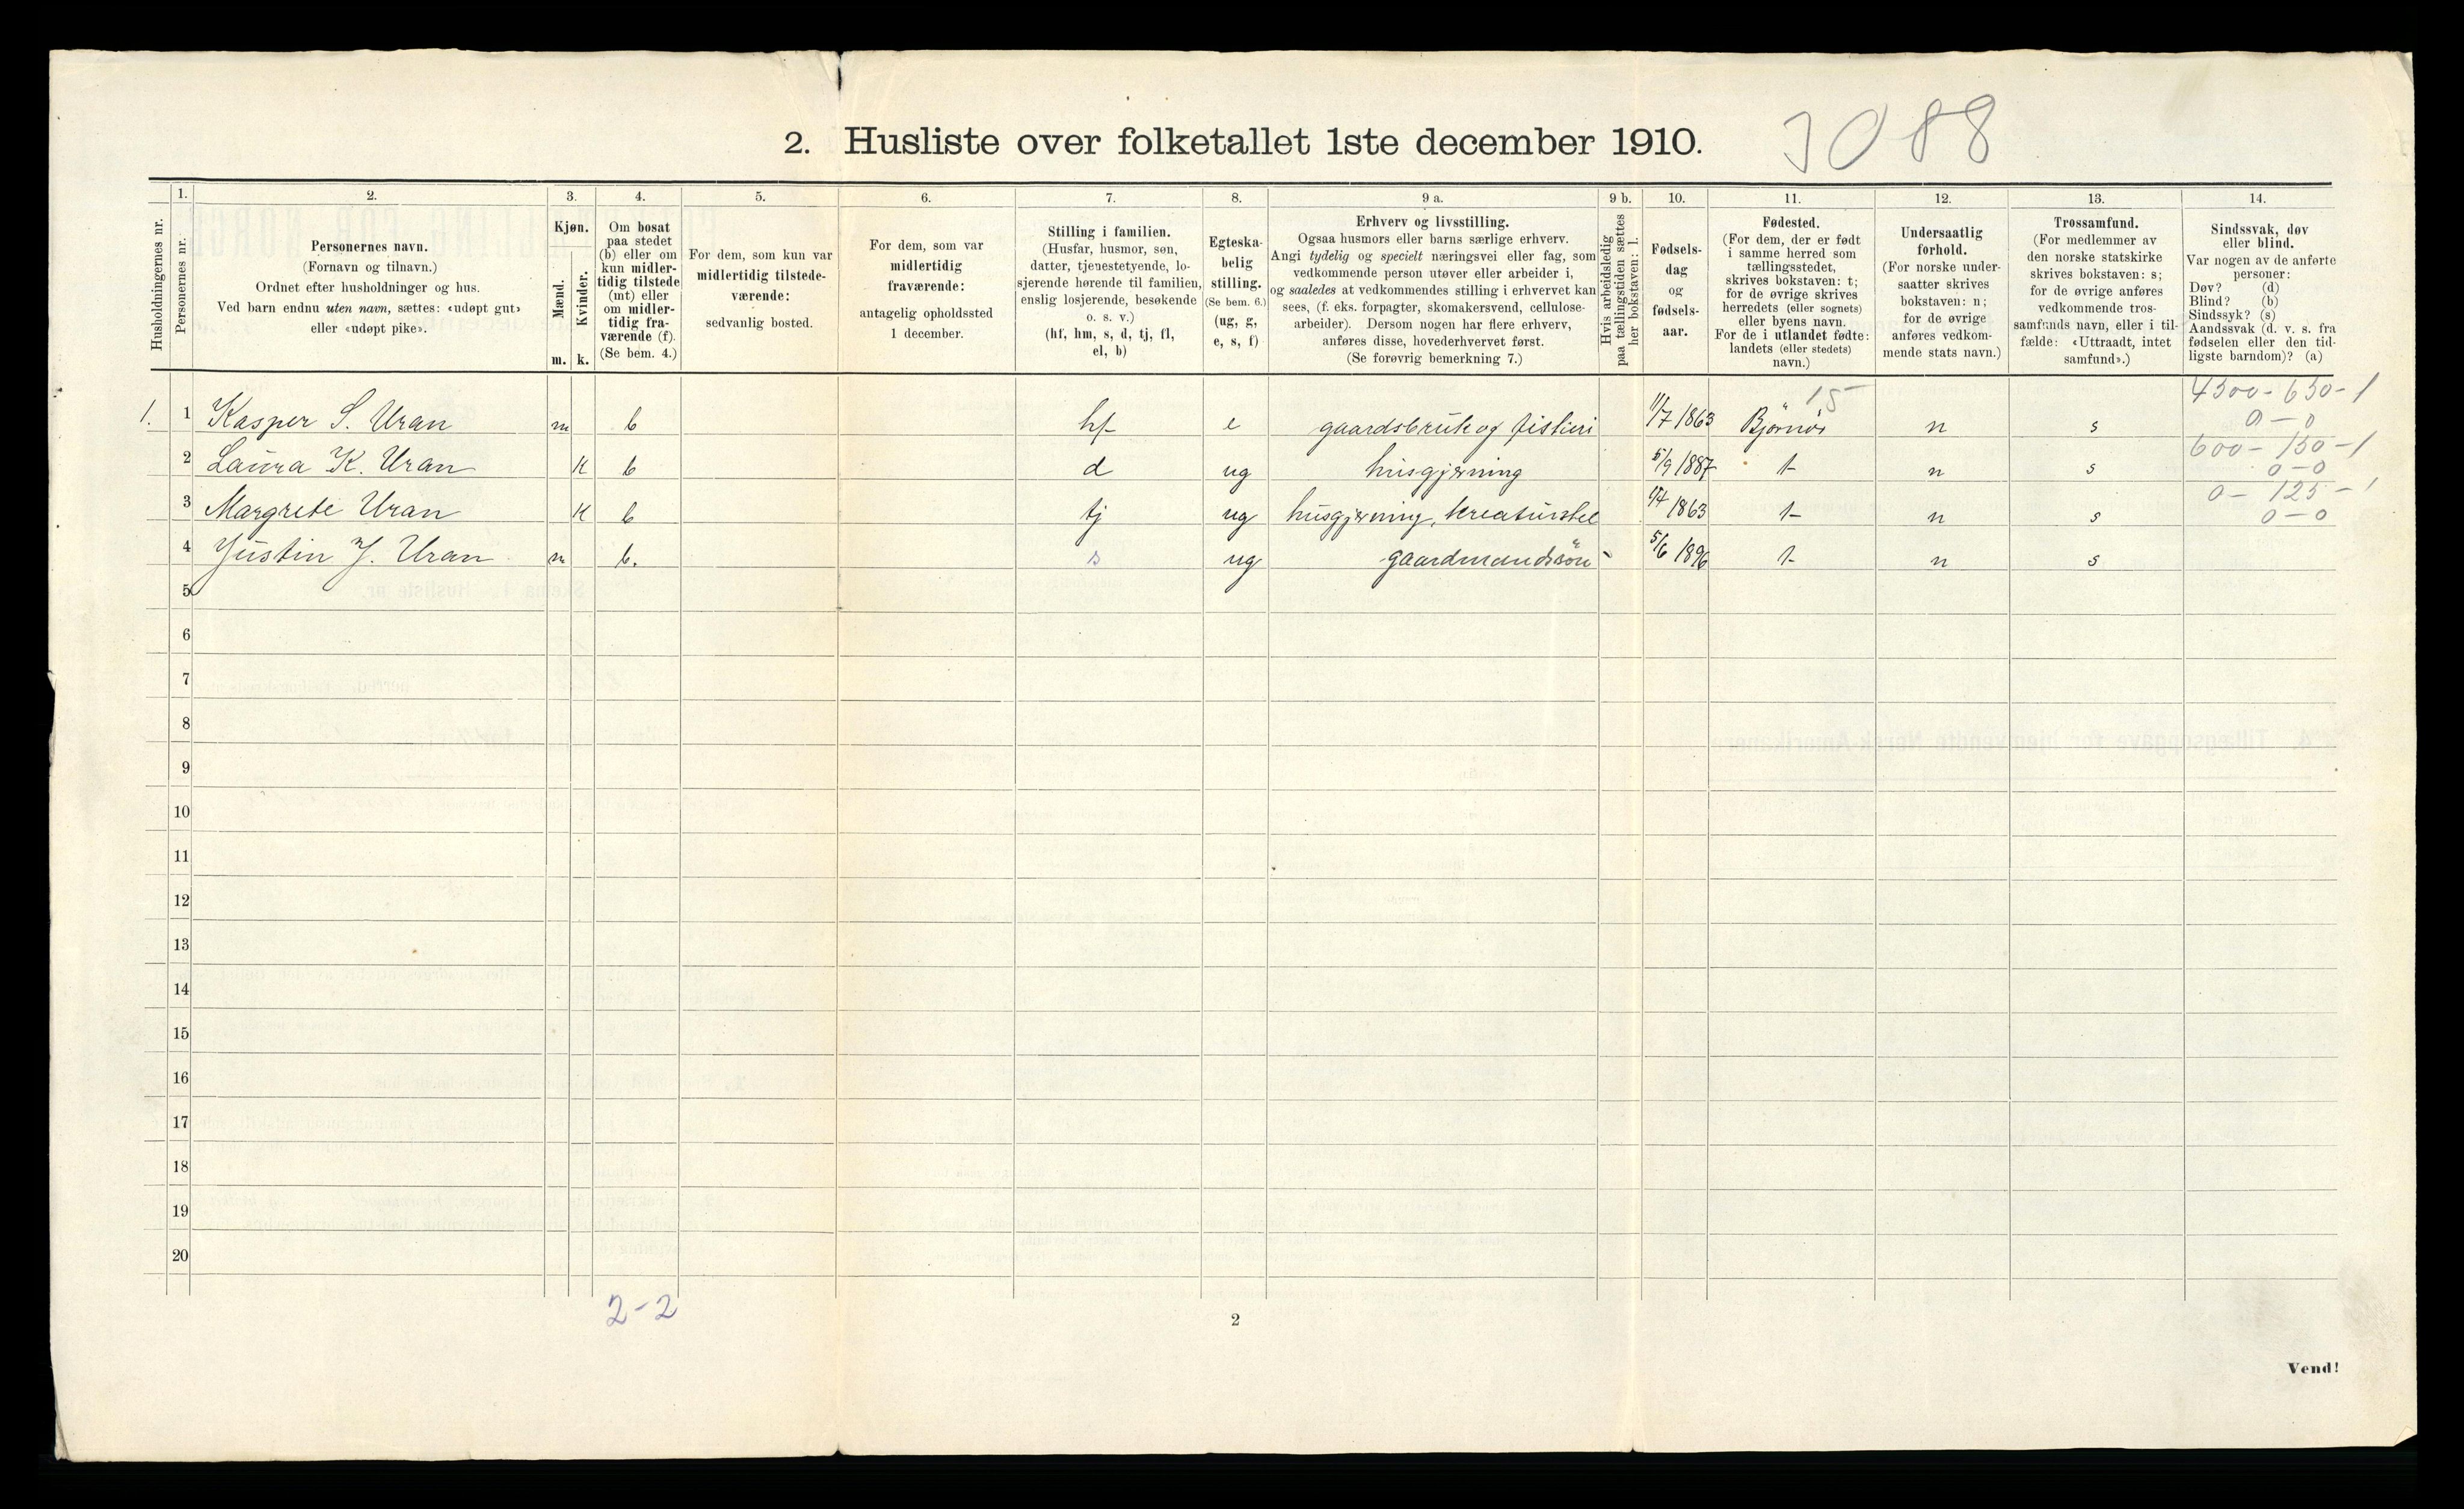 2. Husliste over folketallet 1ste december 1910. 3088
Husholdningernes nr.
1. Personernes nr.
2. Personernes navn.
(Fornavn og tilnavn.)
Ordnet efter husholdninger og hus.
Ved barn endnu uten navn, sættes: «udøpt gut»
eller «udøpt pike».
3. Kjøn.
Mænd. m.
Kvinder. k.
4. Om bosat
paa stedet
(b) eller om
kun midler-
tidig tilstede
(mt) eller
om midler-
tidig fra-
værende (f).
(Se bem. 4.)
5. For dem, som kun var
midlertidig tilstede-
værende:
sedvanlig bosted.
6. For dem, som var
midlertidig
fraværende:
antagelig opholdssted
1 december.
7. Stilling i familien.
(Husfar, husmor, søn,
datter, tjenestetyende, lo-
sjerende hørende til familien,
enslig losjerende, besøkende
o. s. v.)
(hf, hm, s, d, tj, fl,
el, b)
8. Egteska-
belig
stilling.
(Se bem. 6.)
(ug, g,
e, s, f)
9 a. Erhverv og livsstilling.
Ogsaa husmors eller barns særlige erhverv.
Angi tydelig og specielt næringsvei eller fag, som
vedkommende person utøver eller arbeider i,
og saaledes at vedkommendes stilling i erhvervet kan
sees, (f. eks. forpagter, skomakersvend, cellulose-
arbeider). Dersom nogen har flere erhverv,
anføres disse, hovederhvervet først.
(Se forøvrig bemerkning 7.)
9 b. Hvis arbeidsledig
paa tællingstiden sættes
her bokstaven: l.
10. Fødsels-
dag
og
fødsels-
aar.
11. Fødested.
(For dem, der er født
i samme herred som
tællingsstedet,
skrives bokstaven: t;
for de øvrige skrives
herredets (eller sognets)
eller byens navn.
For de i utlandet fødte:
landets (eller stedets)
navn.)
12. Undersaatlig
forhold.
(For norske under-
saatter skrives
bokstaven: n;
for de øvrige
anføres vedkom-
mende stats navn.)
13. Trossamfund.
(For medlemmer av
den norske statskirke
skrives bokstaven: s;
for de øvrige anføres
vedkommende tros-
samfunds navn, eller i til-
fælde: «Uttraadt, intet
samfund».)
14. Sindssvak, døv
eller blind.
Var nogen av de anførte
personer:
Døv? (d)
Blind? (b)
Sindssyk? (s)
Aandssvak (d. v. s. fra
fødselen eller den tid-
ligste barndom)? (a)
15 4500-650-1
1. 1 Kasper S. Uran m b hf e gaardsbruk og fiskeri 11/7 1863 Bjørnør n s 0-0
600-150-1
2 Laura K. Uran K b d ug husgjerning 5/9 1887 t n s 0-0
0-125-1
3 Margrete Uran K b tj ug husgjerning, kreaturstel 1863 t n s 0-0
4 Justin J. Uran m b. s ug gaardmandssøn 5/6 1896 t n s
5
6
7
8
9
10
11
12
13
14
15
16
17
18
19
20
2-2
2
Vend!